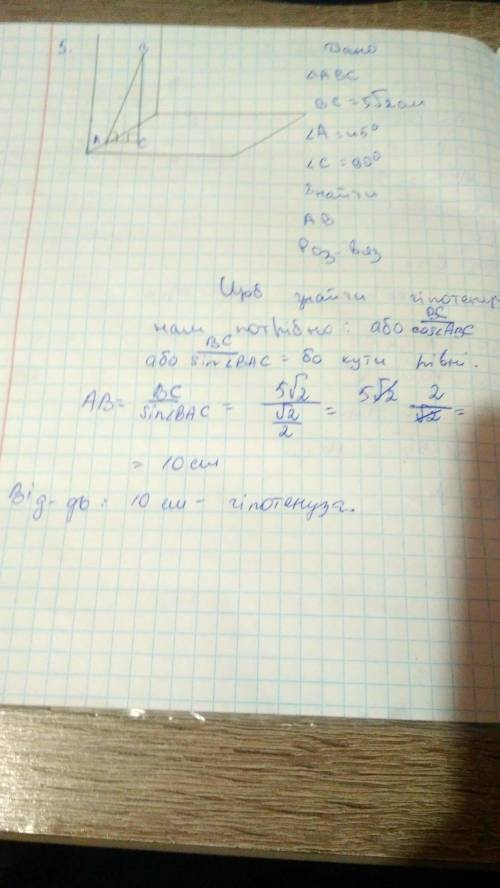 5.
B
A
C
Дано
△ABC
BC = 5√2 см
∠A = 45°
∠C = 90°
Знайти
AB
Роз-вяз
Щоб знайти гіпотенузу
нам потрібно: або BC/cos∠ABC
або BC/sin∠BAC = бо кути рівні.
AB = BC/sin∠BAC = 5√2/(√2/2) = 5√2 2/√2 =
= 10 см
Від-дь: 10 см - гіпотенуза.